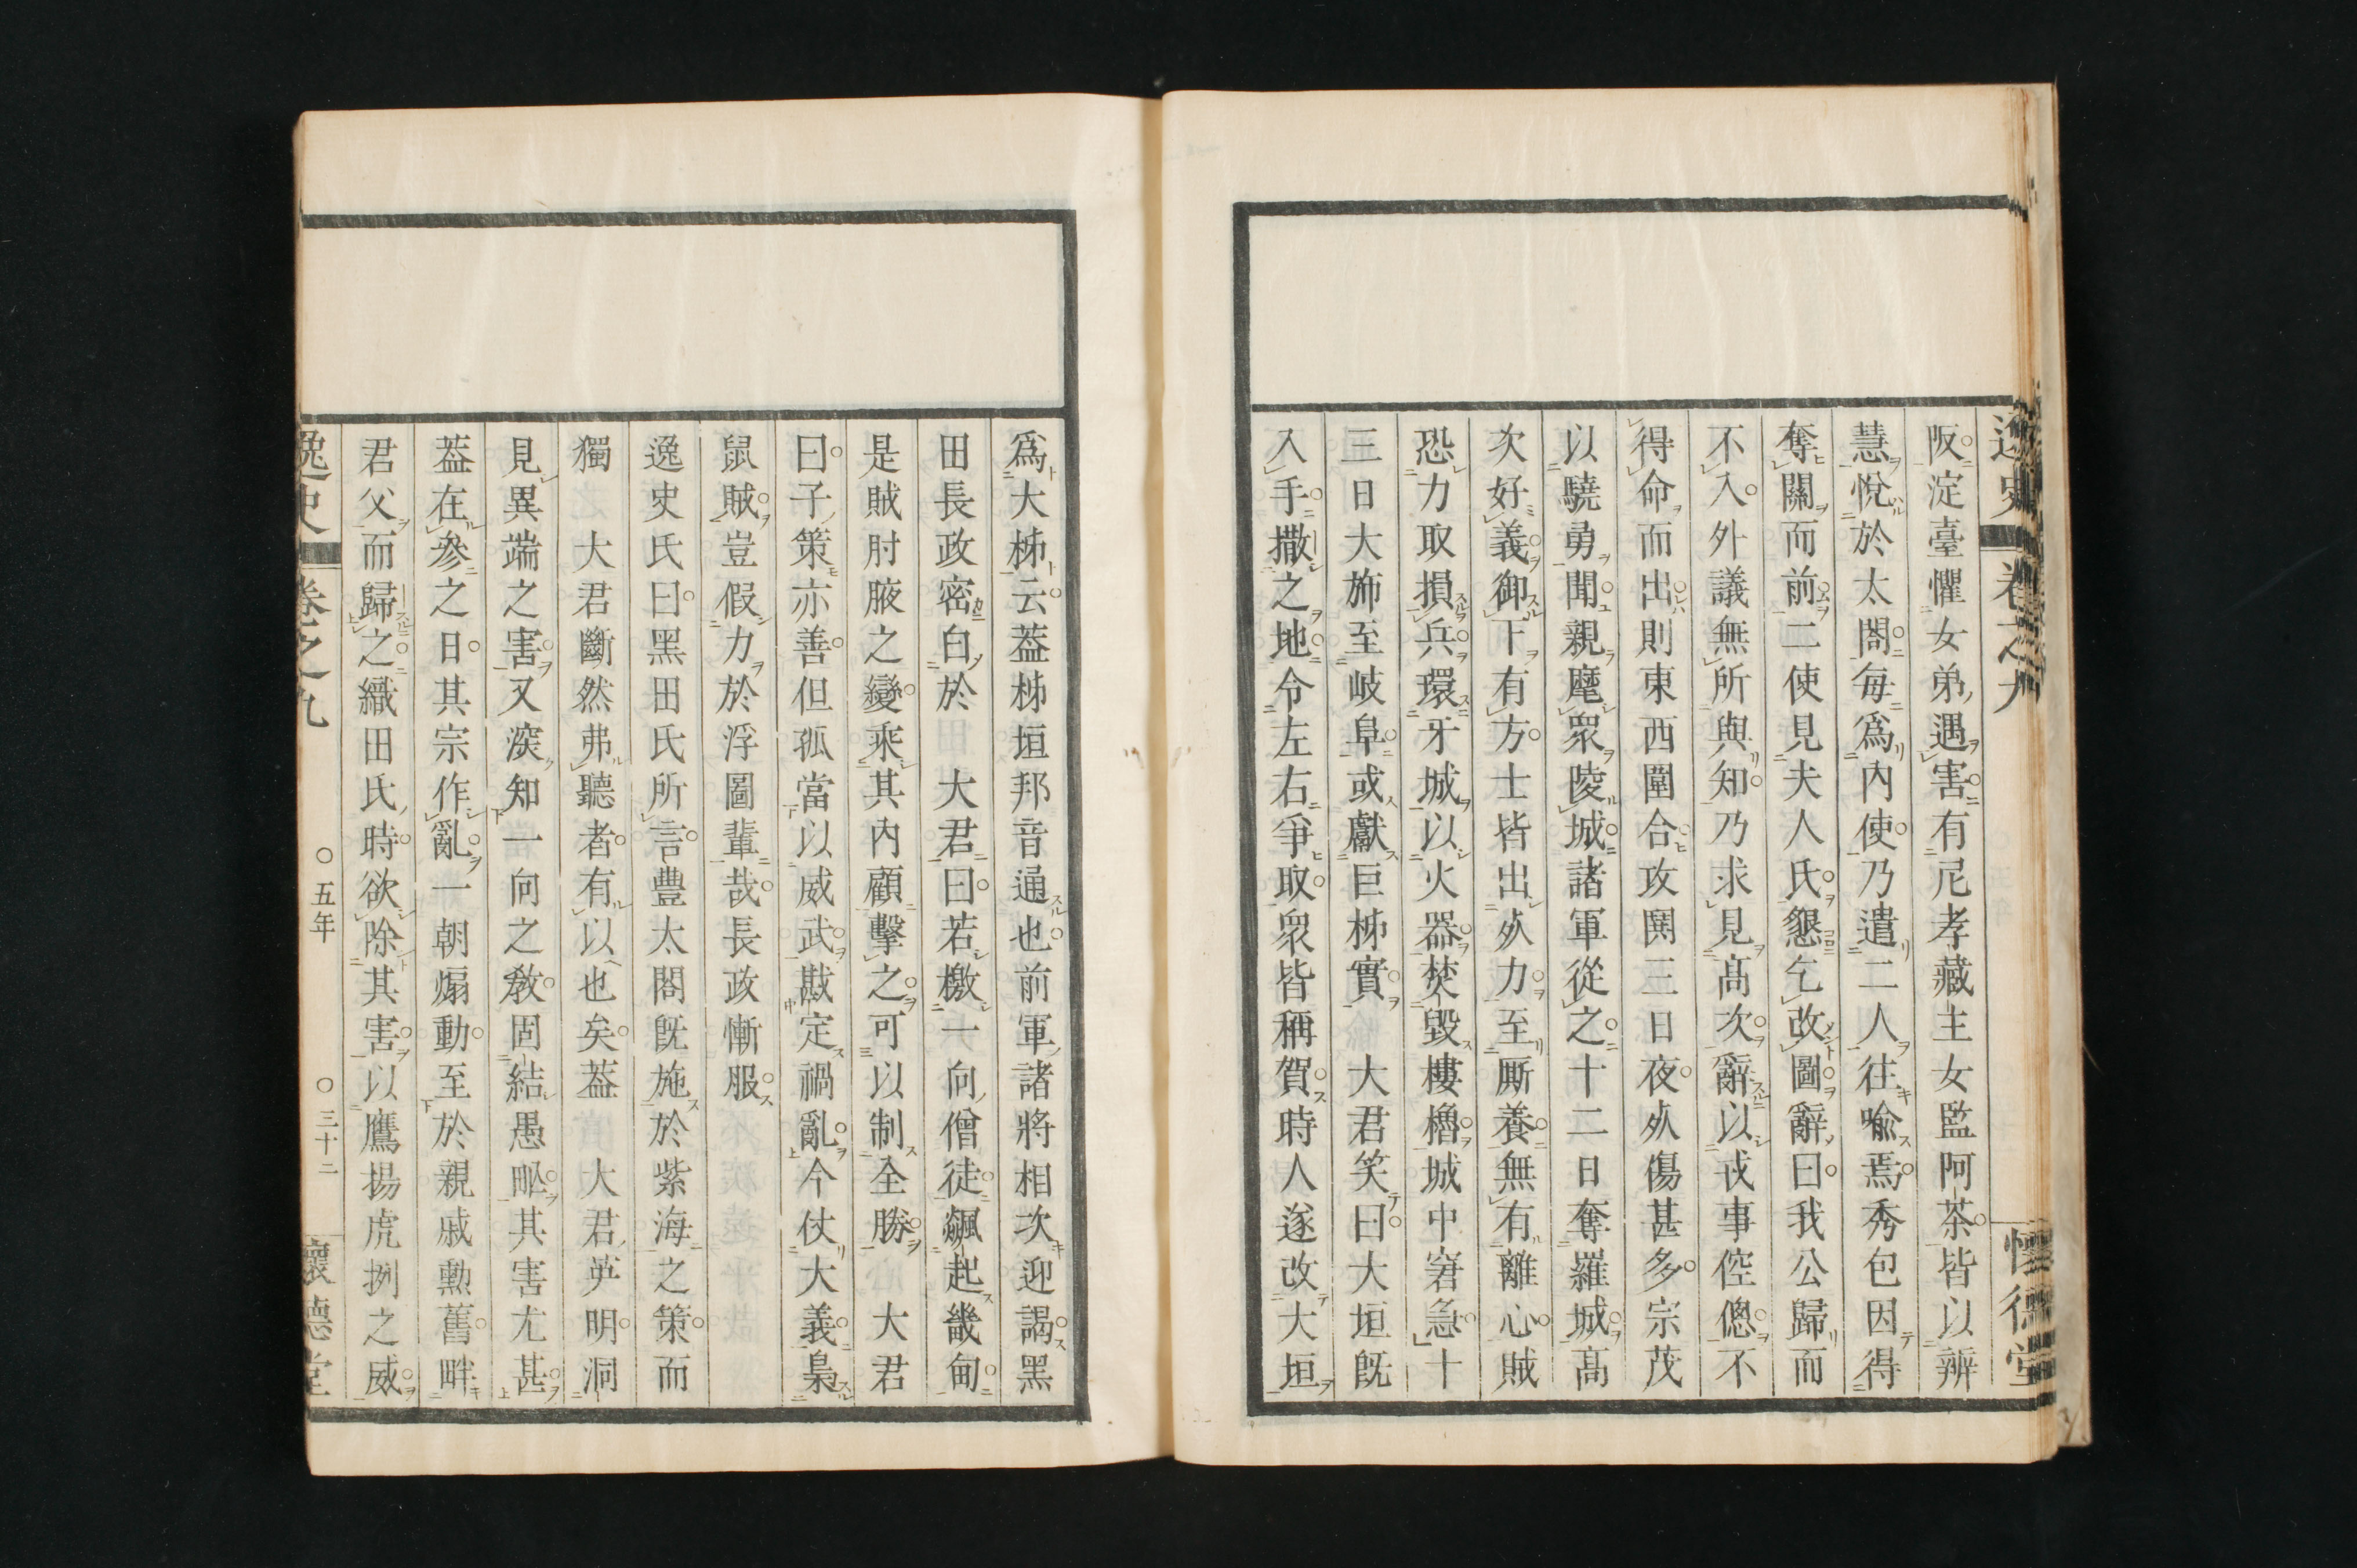 逸史 卷之九 懷德堂
阪淀臺懼女弟遇害有尼孝藏主女監阿茶皆以辨
慧悅於太閤每爲內使乃遣二人往喩焉秀包因得
奪關而前二使見夫人氏懇乞改圖辭曰我公歸而
不入外議無所與知乃求見高次辭以戎事倥傯不
得命而出則東西圍合攻鬪三日夜死傷甚多宗茂
以驍勇聞親麾衆陵城諸軍從之十二日奪羅城高
次好義御下有方士皆出死力至厮養無有離心賊
恐力取損兵環牙城以火器焚毀樓櫓城中窘急十
三日大斾至岐阜或獻巨柹實 大君笑曰大垣既
入手撒之地令左右爭取衆皆稱賀時人遂改大垣
爲大柹云葢柹垣邦音通也前軍諸將相次迎謁黑
田長政密白於 大君曰若檄一向僧徒飆起畿甸
是賊肘腋之變乘其內顧擊之可以制全勝 大君
曰子策亦善但孤當以威武戡定禍亂今仗大義梟
鼠賊豈假力於浮圖輩哉長政慚服
逸史氏曰黑田氏所言豐太閤既施於紫海之策而
獨 大君斷然弗聽者有以也矣葢 大君英明洞
見異端之害又深知一向之敎固結愚甿其害尤甚
葢在參之日其宗作亂一朝煽動至於親戚勳舊畔
君父而歸之織田氏時欲除其害以鷹揚虎挒之威
逸史 卷之九 ○五年 ○三十二 懷德堂